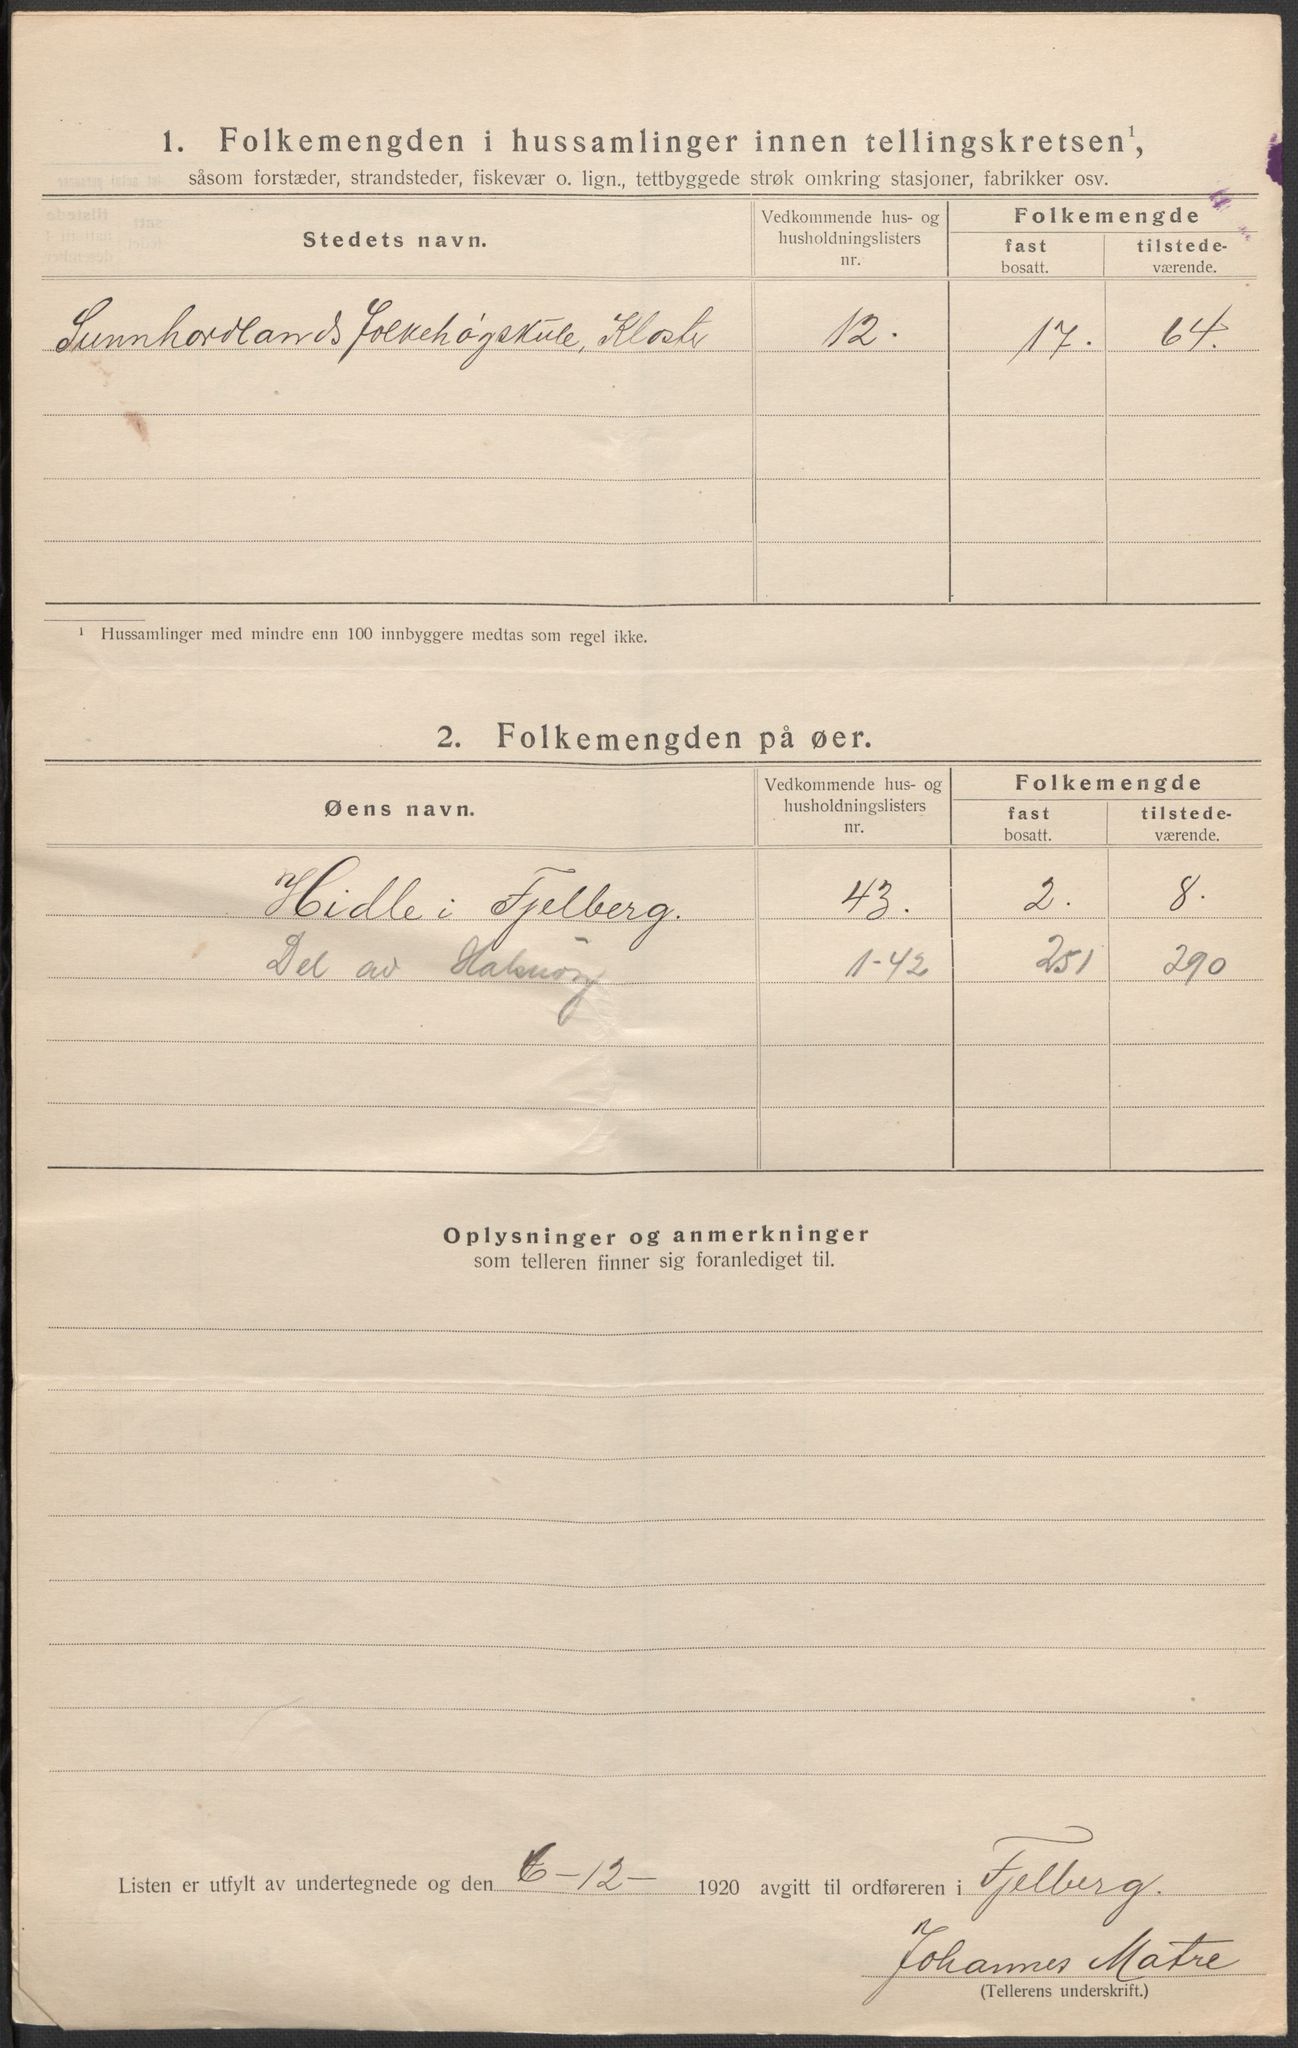 1. Folkemengden i hussamlinger innen tellingskretsen¹,
såsom forstæder, strandsteder, fiskevær o. lign., tettbyggede strøk omkring stasjoner, fabrikker osv.
Stedets navn.
Vedkommende hus- og
husholdningslisters
nr.
Folkemengde
fast
bosatt.
tilstede-
værende.
Sunnhordlands Folkehøgskule, Kloster 12. 17. 64.
¹ Hussamlinger med mindre enn 100 innbyggere medtas som regel ikke.
2. Folkemengden på øer.
Øens navn.
Vedkommende hus- og
husholdningslisters
nr.
Folkemengde
fast
bosatt.
tilstede-
værende.
Hidle i Fjelberg. 43. 2. 8.
Del av Halsnöy 1-42 251 290
Oplysninger og anmerkninger
som telleren finner sig foranlediget til.
Listen er utfylt av undertegnede og den 6-12- 1920 avgitt til ordføreren i Fjelberg.
Johannes Matre
(Tellerens underskrift.)